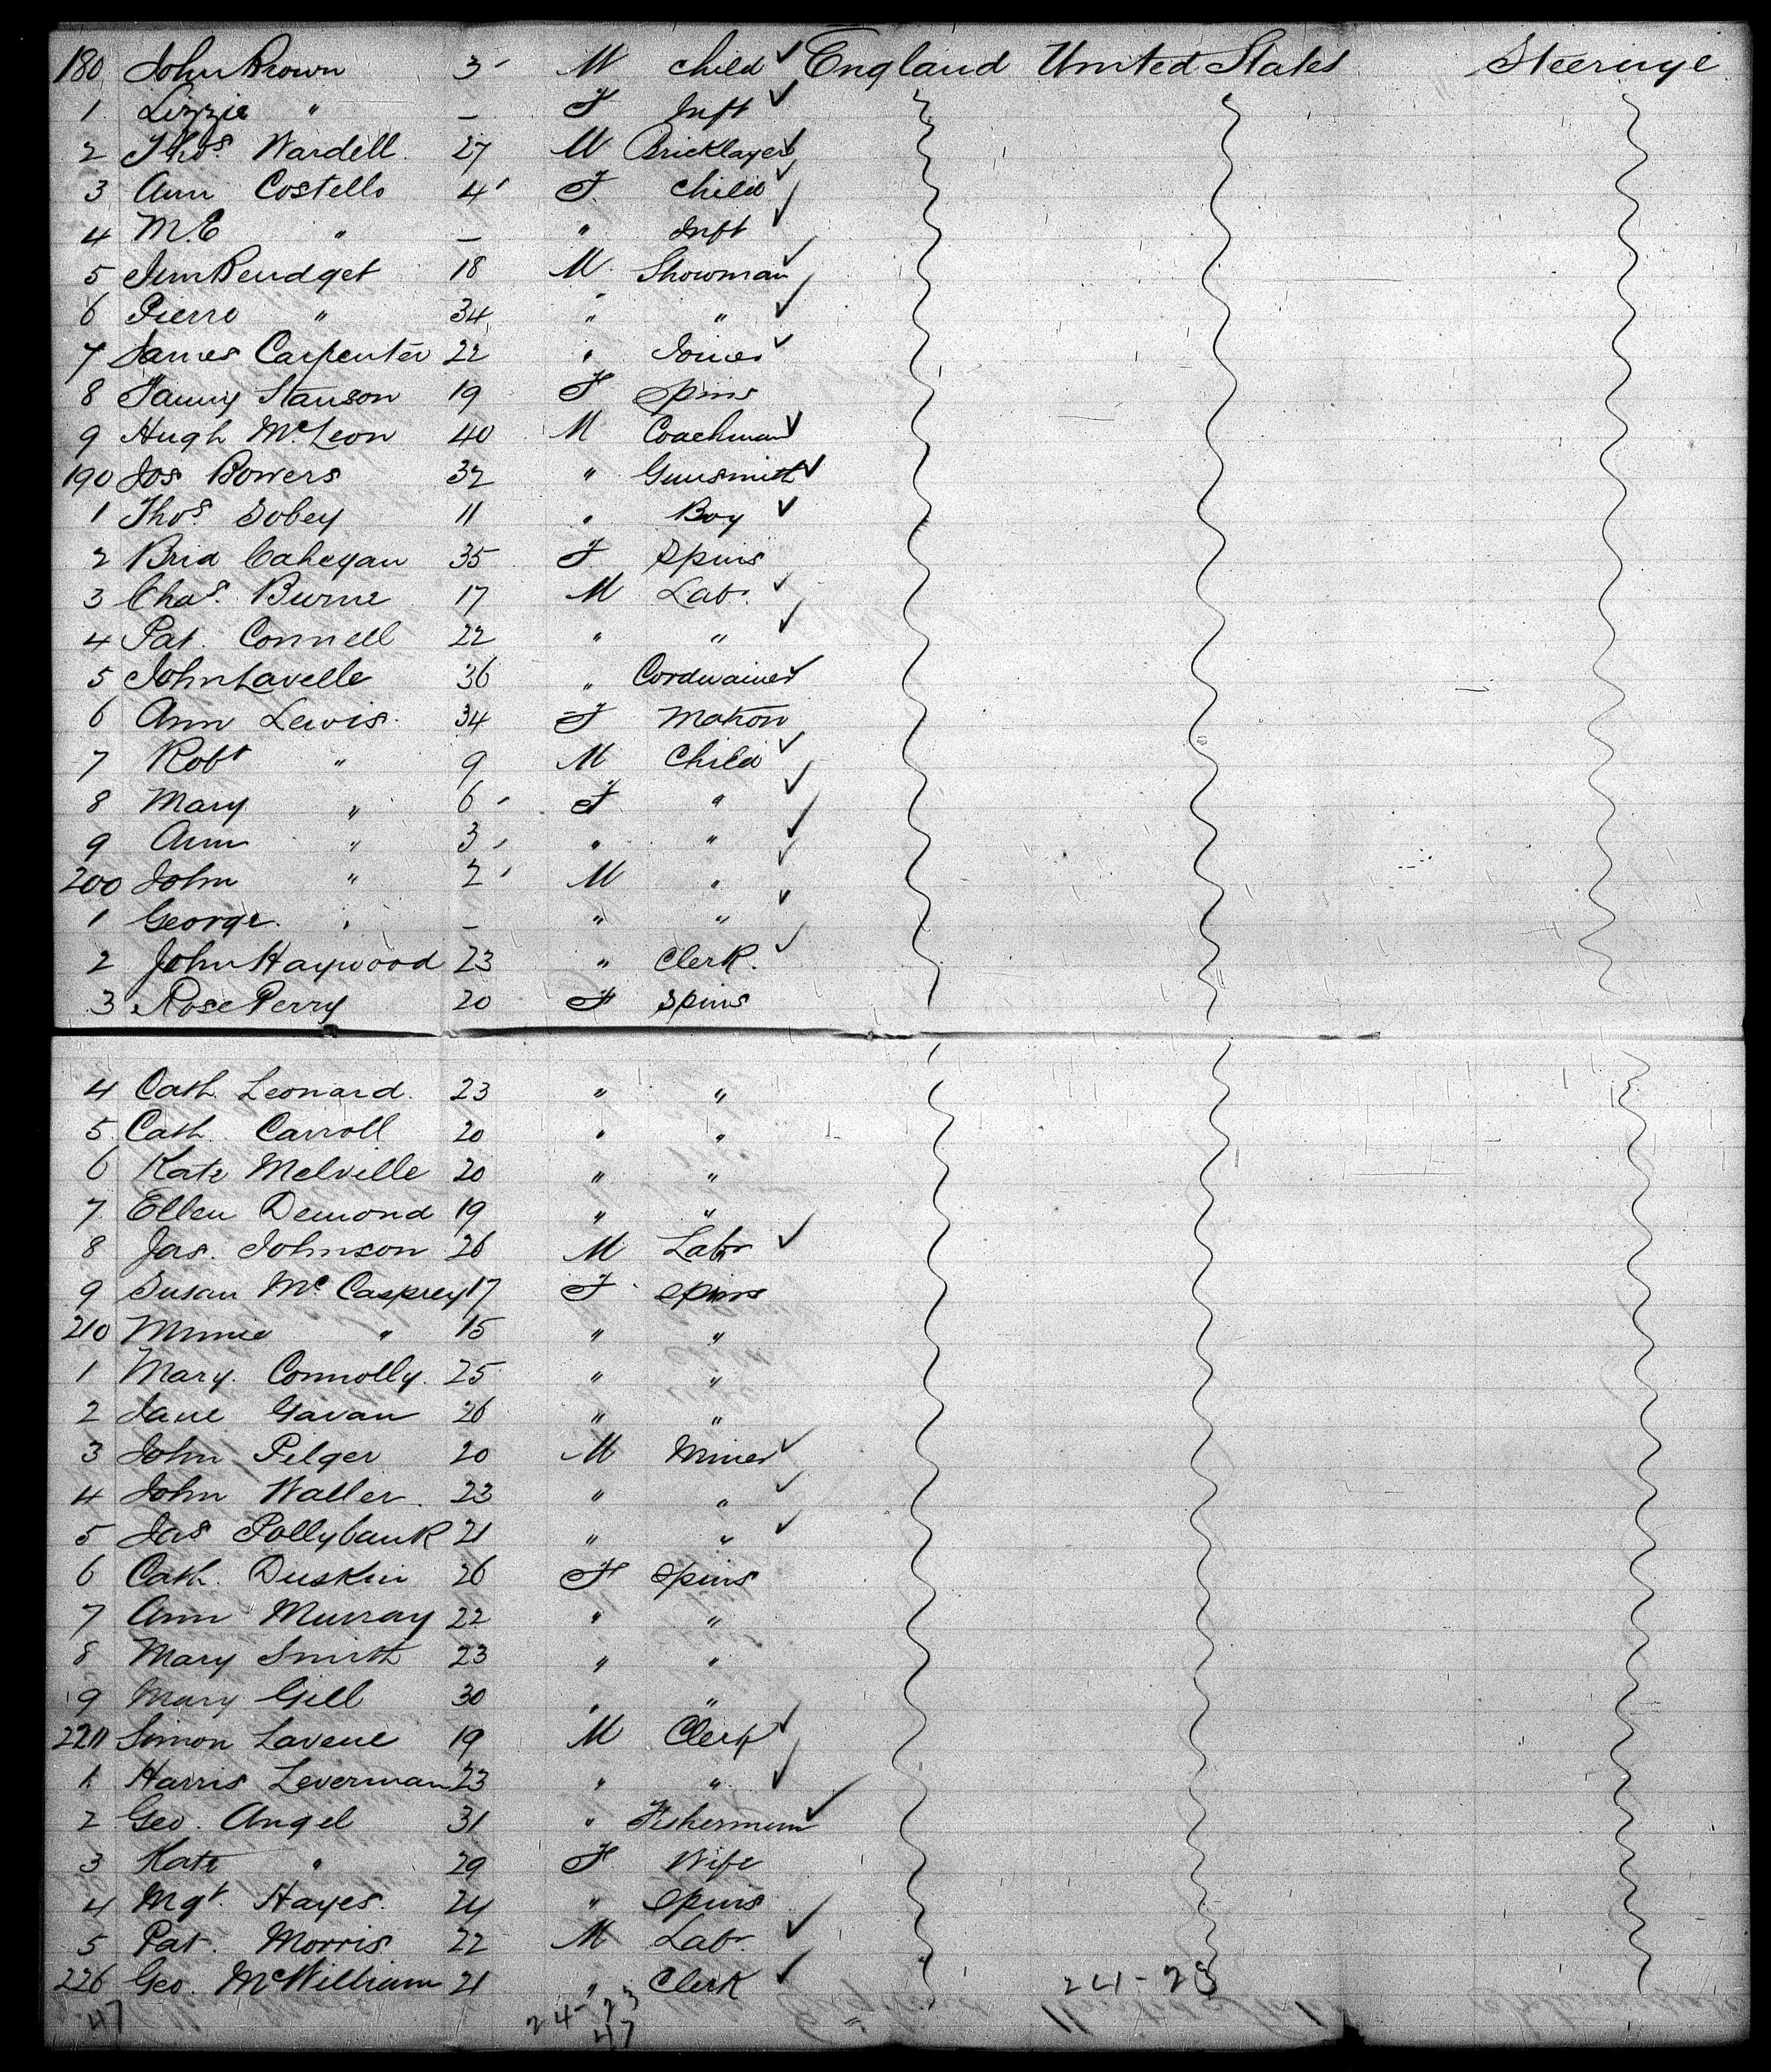 180 John Brown 3 M Child ✓ England United States Steerage
1 Lizzie " – F Inft ✓
2 Thos. Wardell 27 M Bricklayer ✓
3 Ann Costello 4 F Child ✓
4 M.E " – " Inft ✓
5 Jim 18 M Showman ✓
6 Pierre " 34 " " ✓
7 James Carpenter 22 " Joiner ✓
8 Fanny Stanson 19 F Spins
9 Hugh McLeon 40 M Coachman ✓
190 Jos Bowers 32 " Gunsmith ✓
1 Thos. Sobey 11 " Boy ✓
2 Brid Cahegan 35 F Spins
3 Chas. Burne 17 M Lab. ✓
4 Pat. Connell 22 " " ✓
5 John Lavelle 36 " Cordwainer ✓
6 Ann Lewis 34 F Matron
7 Robt " 9 M Child ✓
8 Mary " 6 F " ✓
9 Ann " 3 " " ✓
200 John " 2 M " ✓
1 George " – " " ✓
2 John Haywood 23 " Clerk. ✓
3 Rose Perry 20 F Spins
4 Cath. Leonard. 23 " "
5 Cath. Carroll 20 " "
6 Kate Melville 20 " "
7 Ellen Demond 19 " "
8 Jas. Johnson 26 M Labr ✓
9 Susan McCasprey 17 F Spins
210 Minnie " 15 " "
1 Mary Connolly. 25 " "
2 Jane Gavan 26 " "
3 John Pilger 20 M Miner ✓
4 John Waller 23 " " ✓
5 Jas Pollybank 21 " " ✓
6 Cath. Duskin 26 F Spins
7 Ann Murray 22 " "
8 Mary Smith 23 " "
9 Mary Gill 30 " "
220 Simon Lavene 19 M Clerk ✓
1 Harris Leverman 23 " " ✓
2 Geo. Angel 31 " Fisherman ✓
3 Kate " 29 F Wife
4 Mgt. Hayes. 24 " Spins
5 Pat. Morris 22 M Lab. ✓
226 Geo. McWilliam 21 " Clerk ✓ 24-23
47 24-23
47